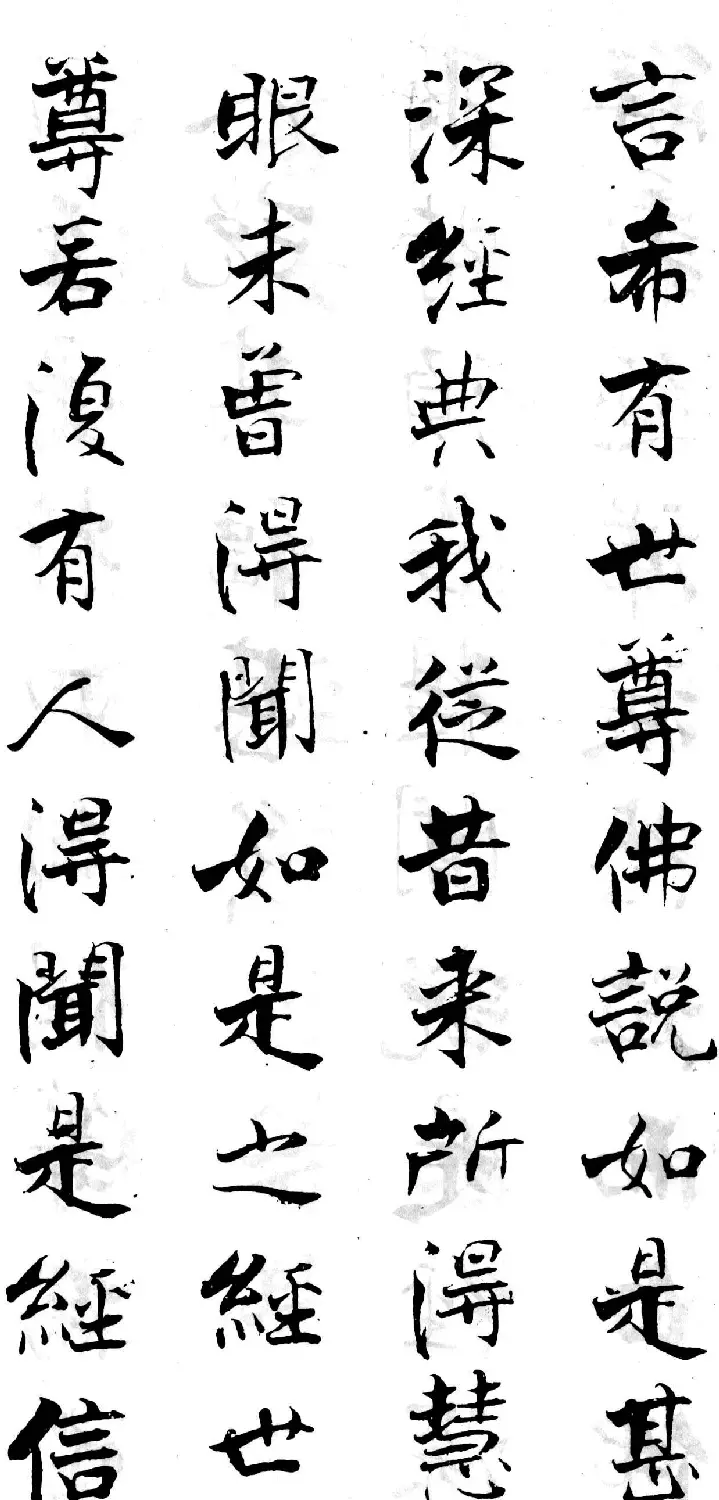 言希有世尊佛說如是甚
深經典我從昔来所得慧
眼未曾得聞如是之經世
尊若復有人得聞是經信